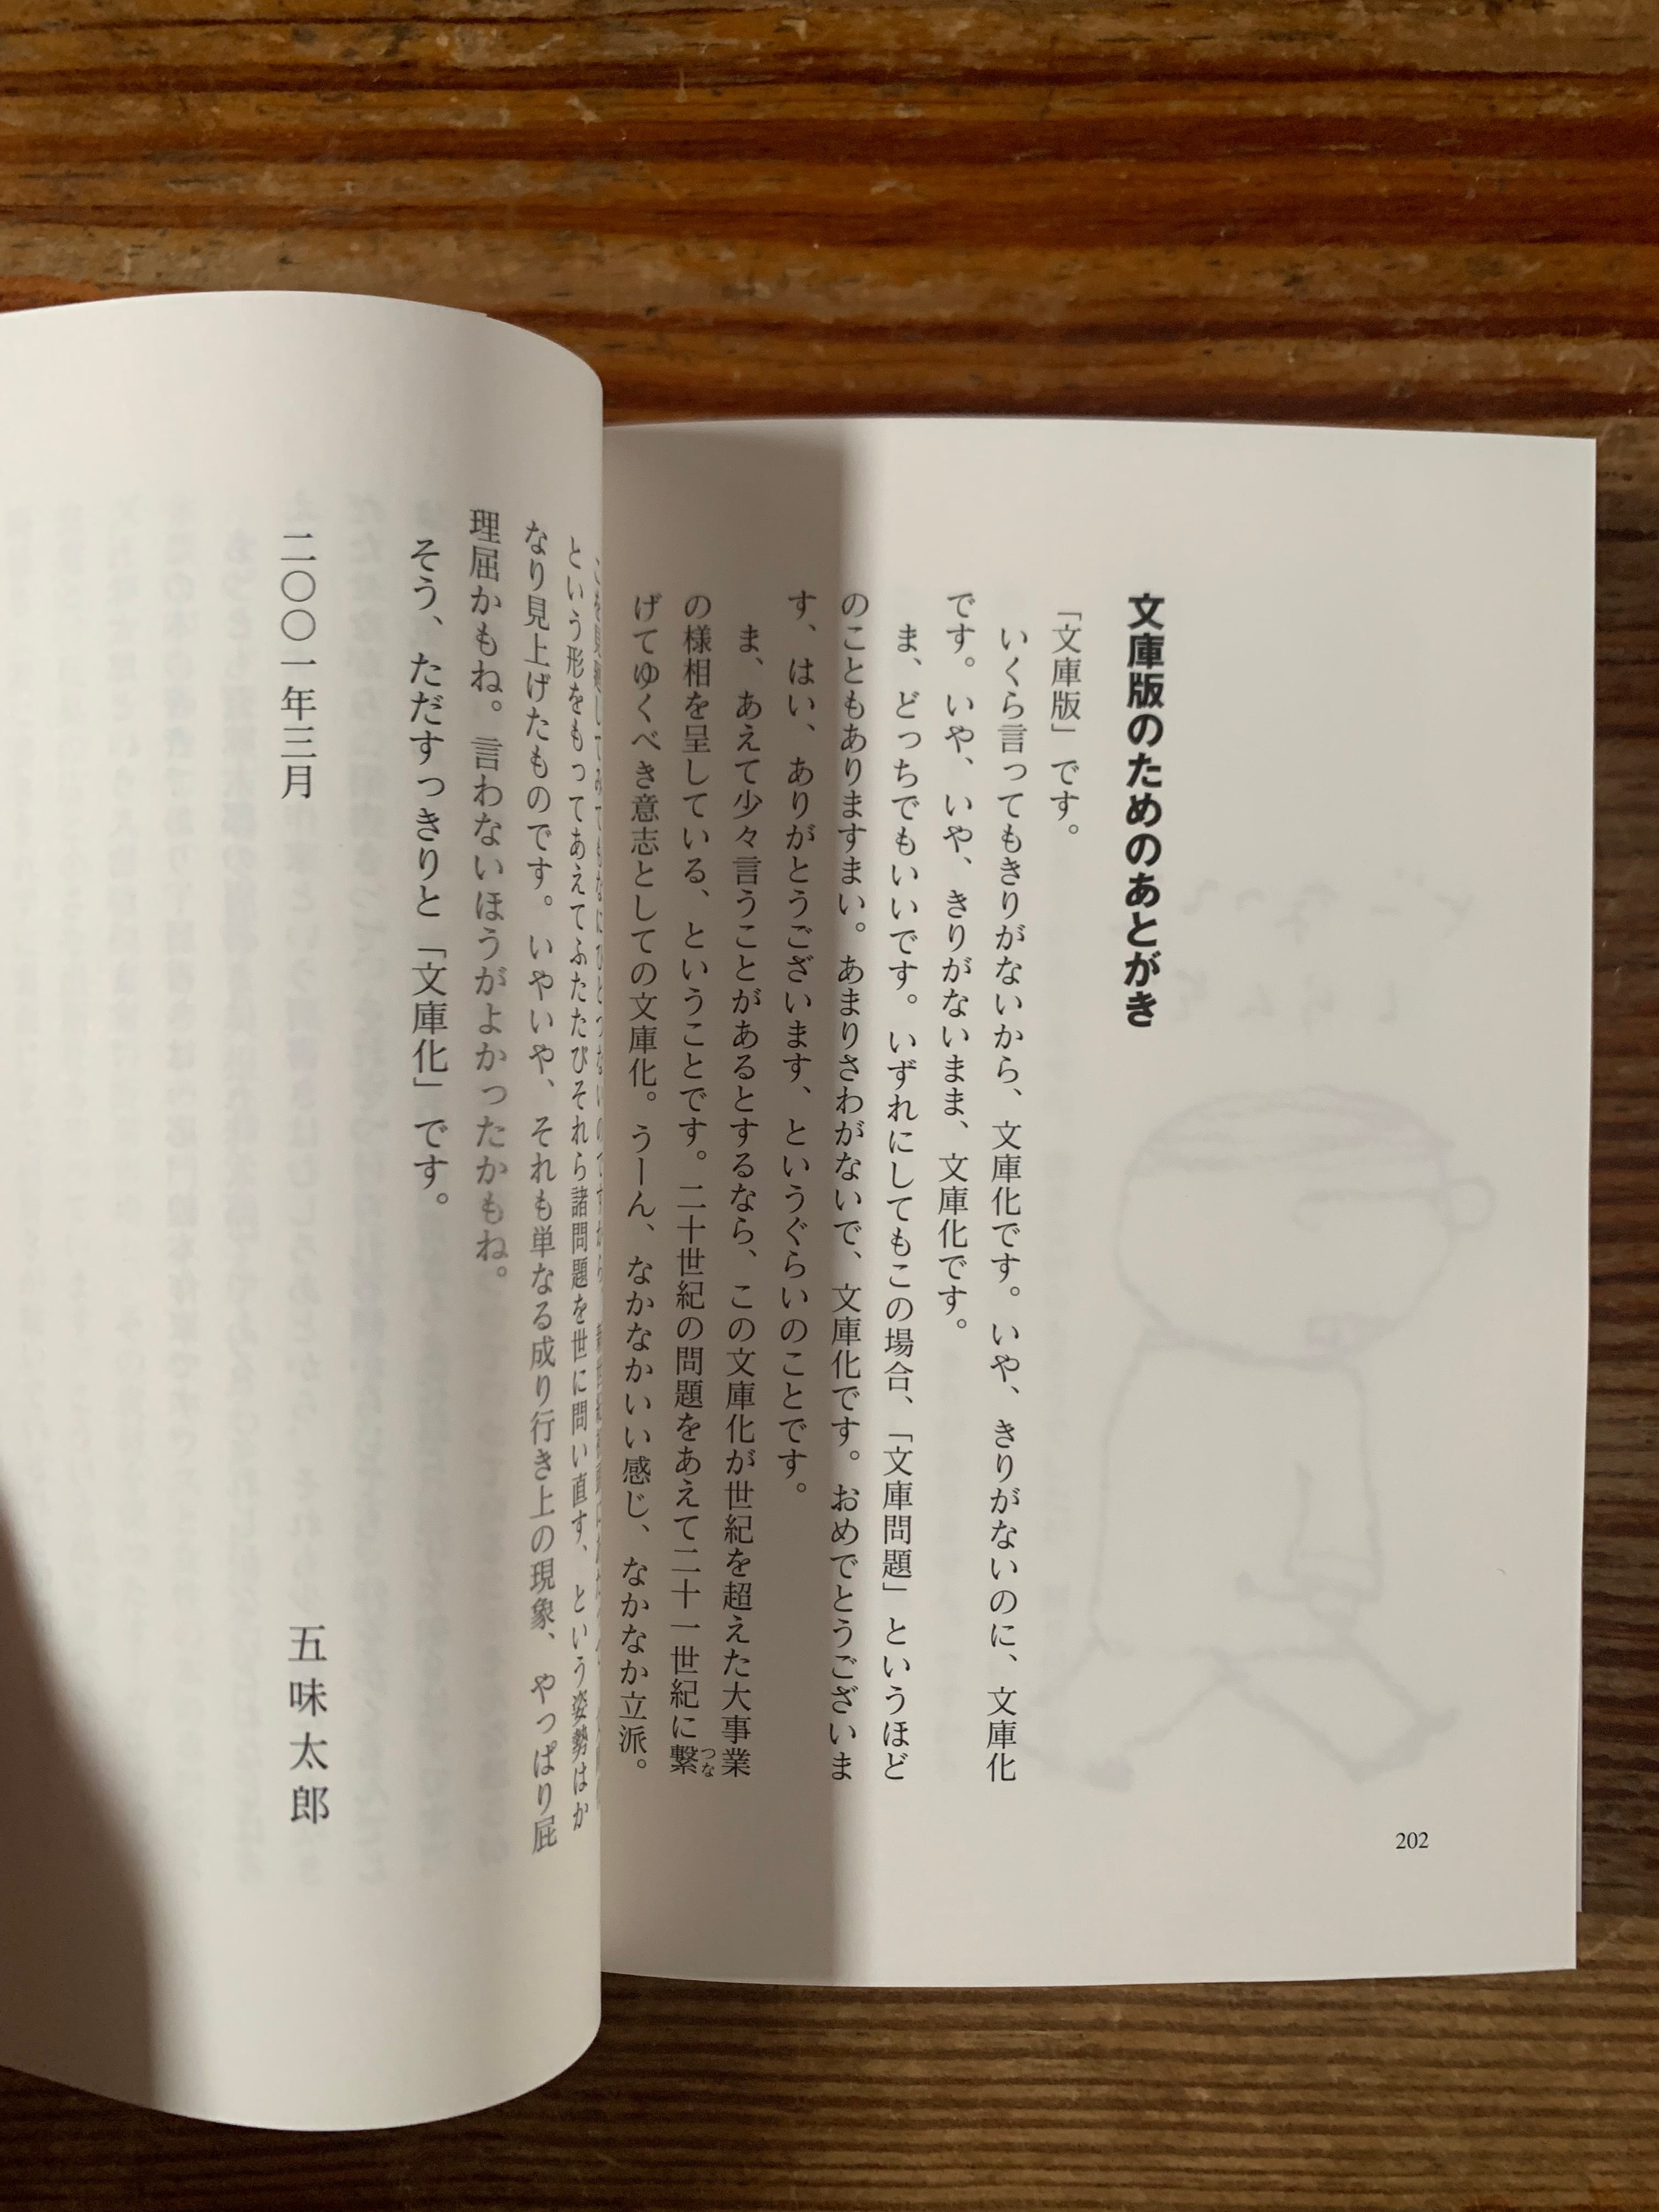 文庫版のためのあとがき
「文庫版」です。
いくら言ってもきりがないから、文庫化です。いや、きりがないのに、文庫化
です。いや、いや、きりがないまま、文庫化です。
ま、どっちでもいいです。いずれにしてもこの場合、「文庫問題」というほど
のこともありますまい。あまりさわがないで、文庫化です。おめでとうございま
す、はい、ありがとうございます、というぐらいのことです。
ま、あえて少々言うことがあるとするなら、この文庫化が世紀を超えた大事業
の様相を呈している、ということです。二十世紀の問題をあえて二十一世紀に繋つな
げてゆくべき意志としての文庫化。うーん、なかなかいい感じ、なかなか立派。
202
という形をもってあえてふたたびそれら諸問題を世に問い直す、という姿勢はか
なり見上げたものです。いやいや、それも単なる成り行き上の現象、やっぱり屁
理屈かもね。言わないほうがよかったかもね。
そう、ただすっきりと「文庫化」です。
二〇〇一年三月
五味太郎